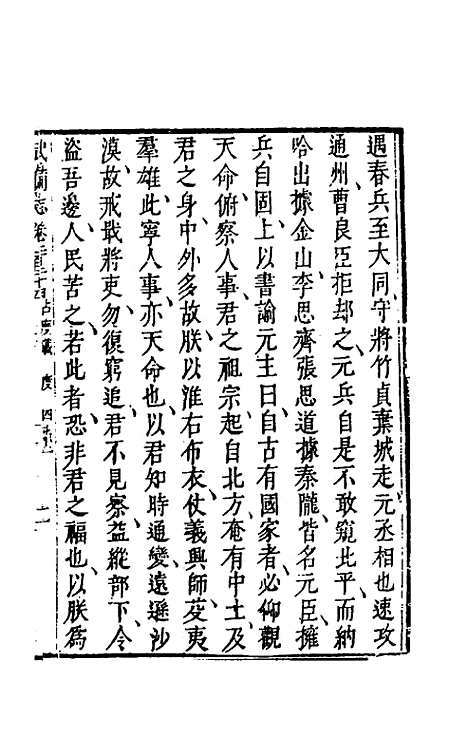 遇春兵至大同守將竹貞棄城走元丞相也速攻
通州曹良臣拒却之元兵自是不敢窺北平而納
哈出據金山李思齊張思道據秦隴皆名元臣擁
兵自固上以書諭元主曰自古有國家者必仰觀
天命俯察人事君之祖宗起自北方奄有中土及
君之身中外多故朕以淮右布衣仗義興師芟夷
羣雄此寧人事亦天命也以君知時通變遠遜沙
漠故戒戢將吏勿復窮追君不見察益縱部下令
盜吾邊人民苦之若此者恐非君之福也以朕爲
武備志 卷二百二十四 占度載 度 四夷